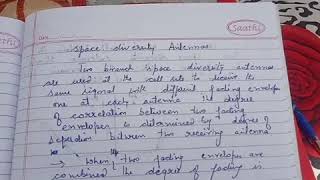 Saathi
Space diversity Antennas
Two branch space diversity antennas
are used at the cell site to receive the
same signal with different fading envelopes
one at each antenna. The degree
of correlation between two fading
envelopes is determined by degree of
sepration between two receiving antenna
→ When two fading envelopes are
combined the degree of fading is
Saathi